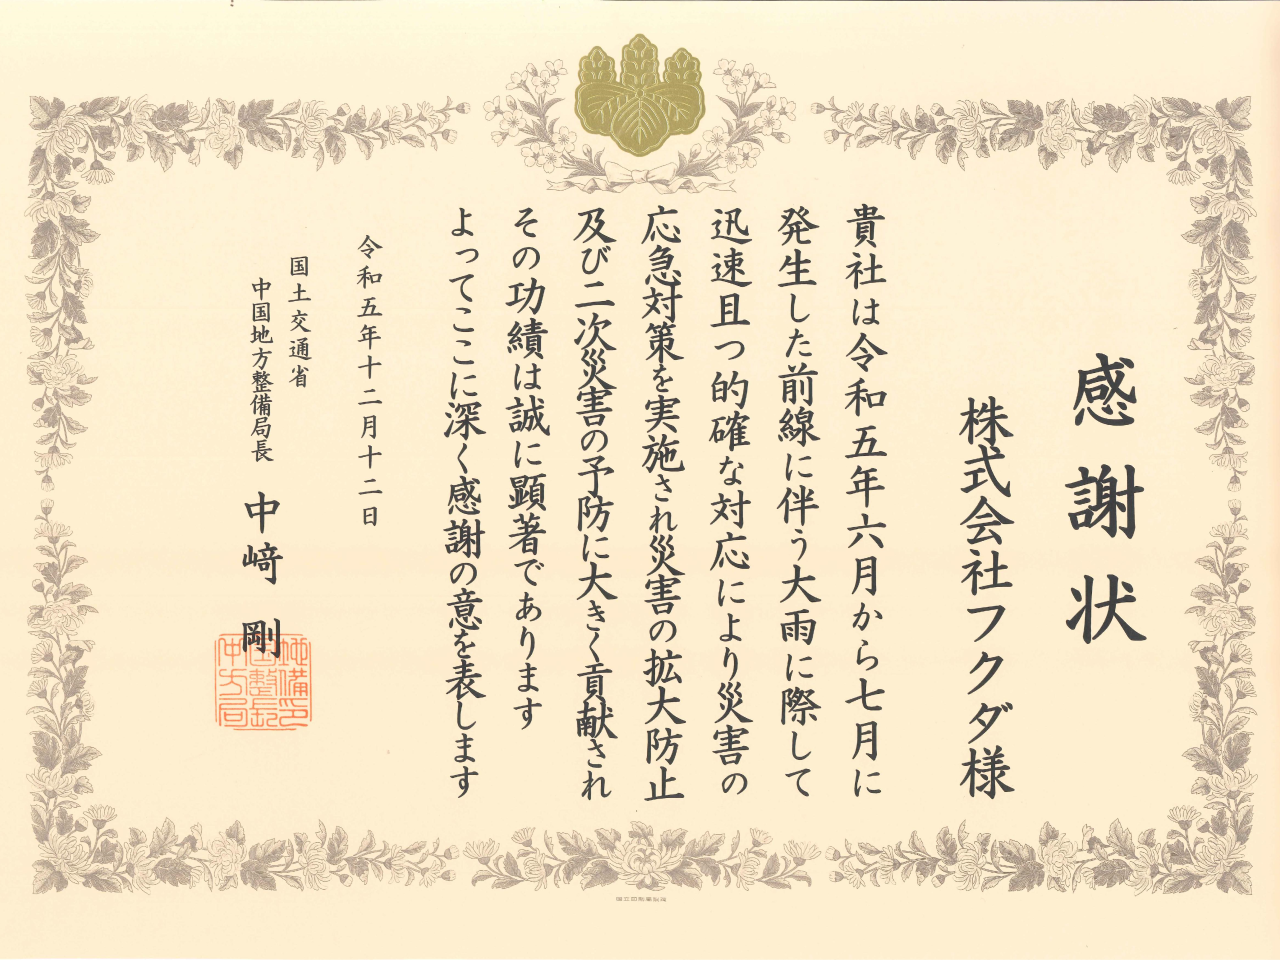 感謝状
株式会社フクダ様
貴社は令和五年六月から七月に
発生した前線に伴う大雨に際して
迅速且つ的確な対応により災害の
応急対策を実施され災害の拡大防止
及び二次災害の予防に大きく貢献され
その功績は誠に顕著であります
よってここに深く感謝の意を表します
令和五年十二月十二日
国土交通省
中国地方整備局長 中﨑 剛